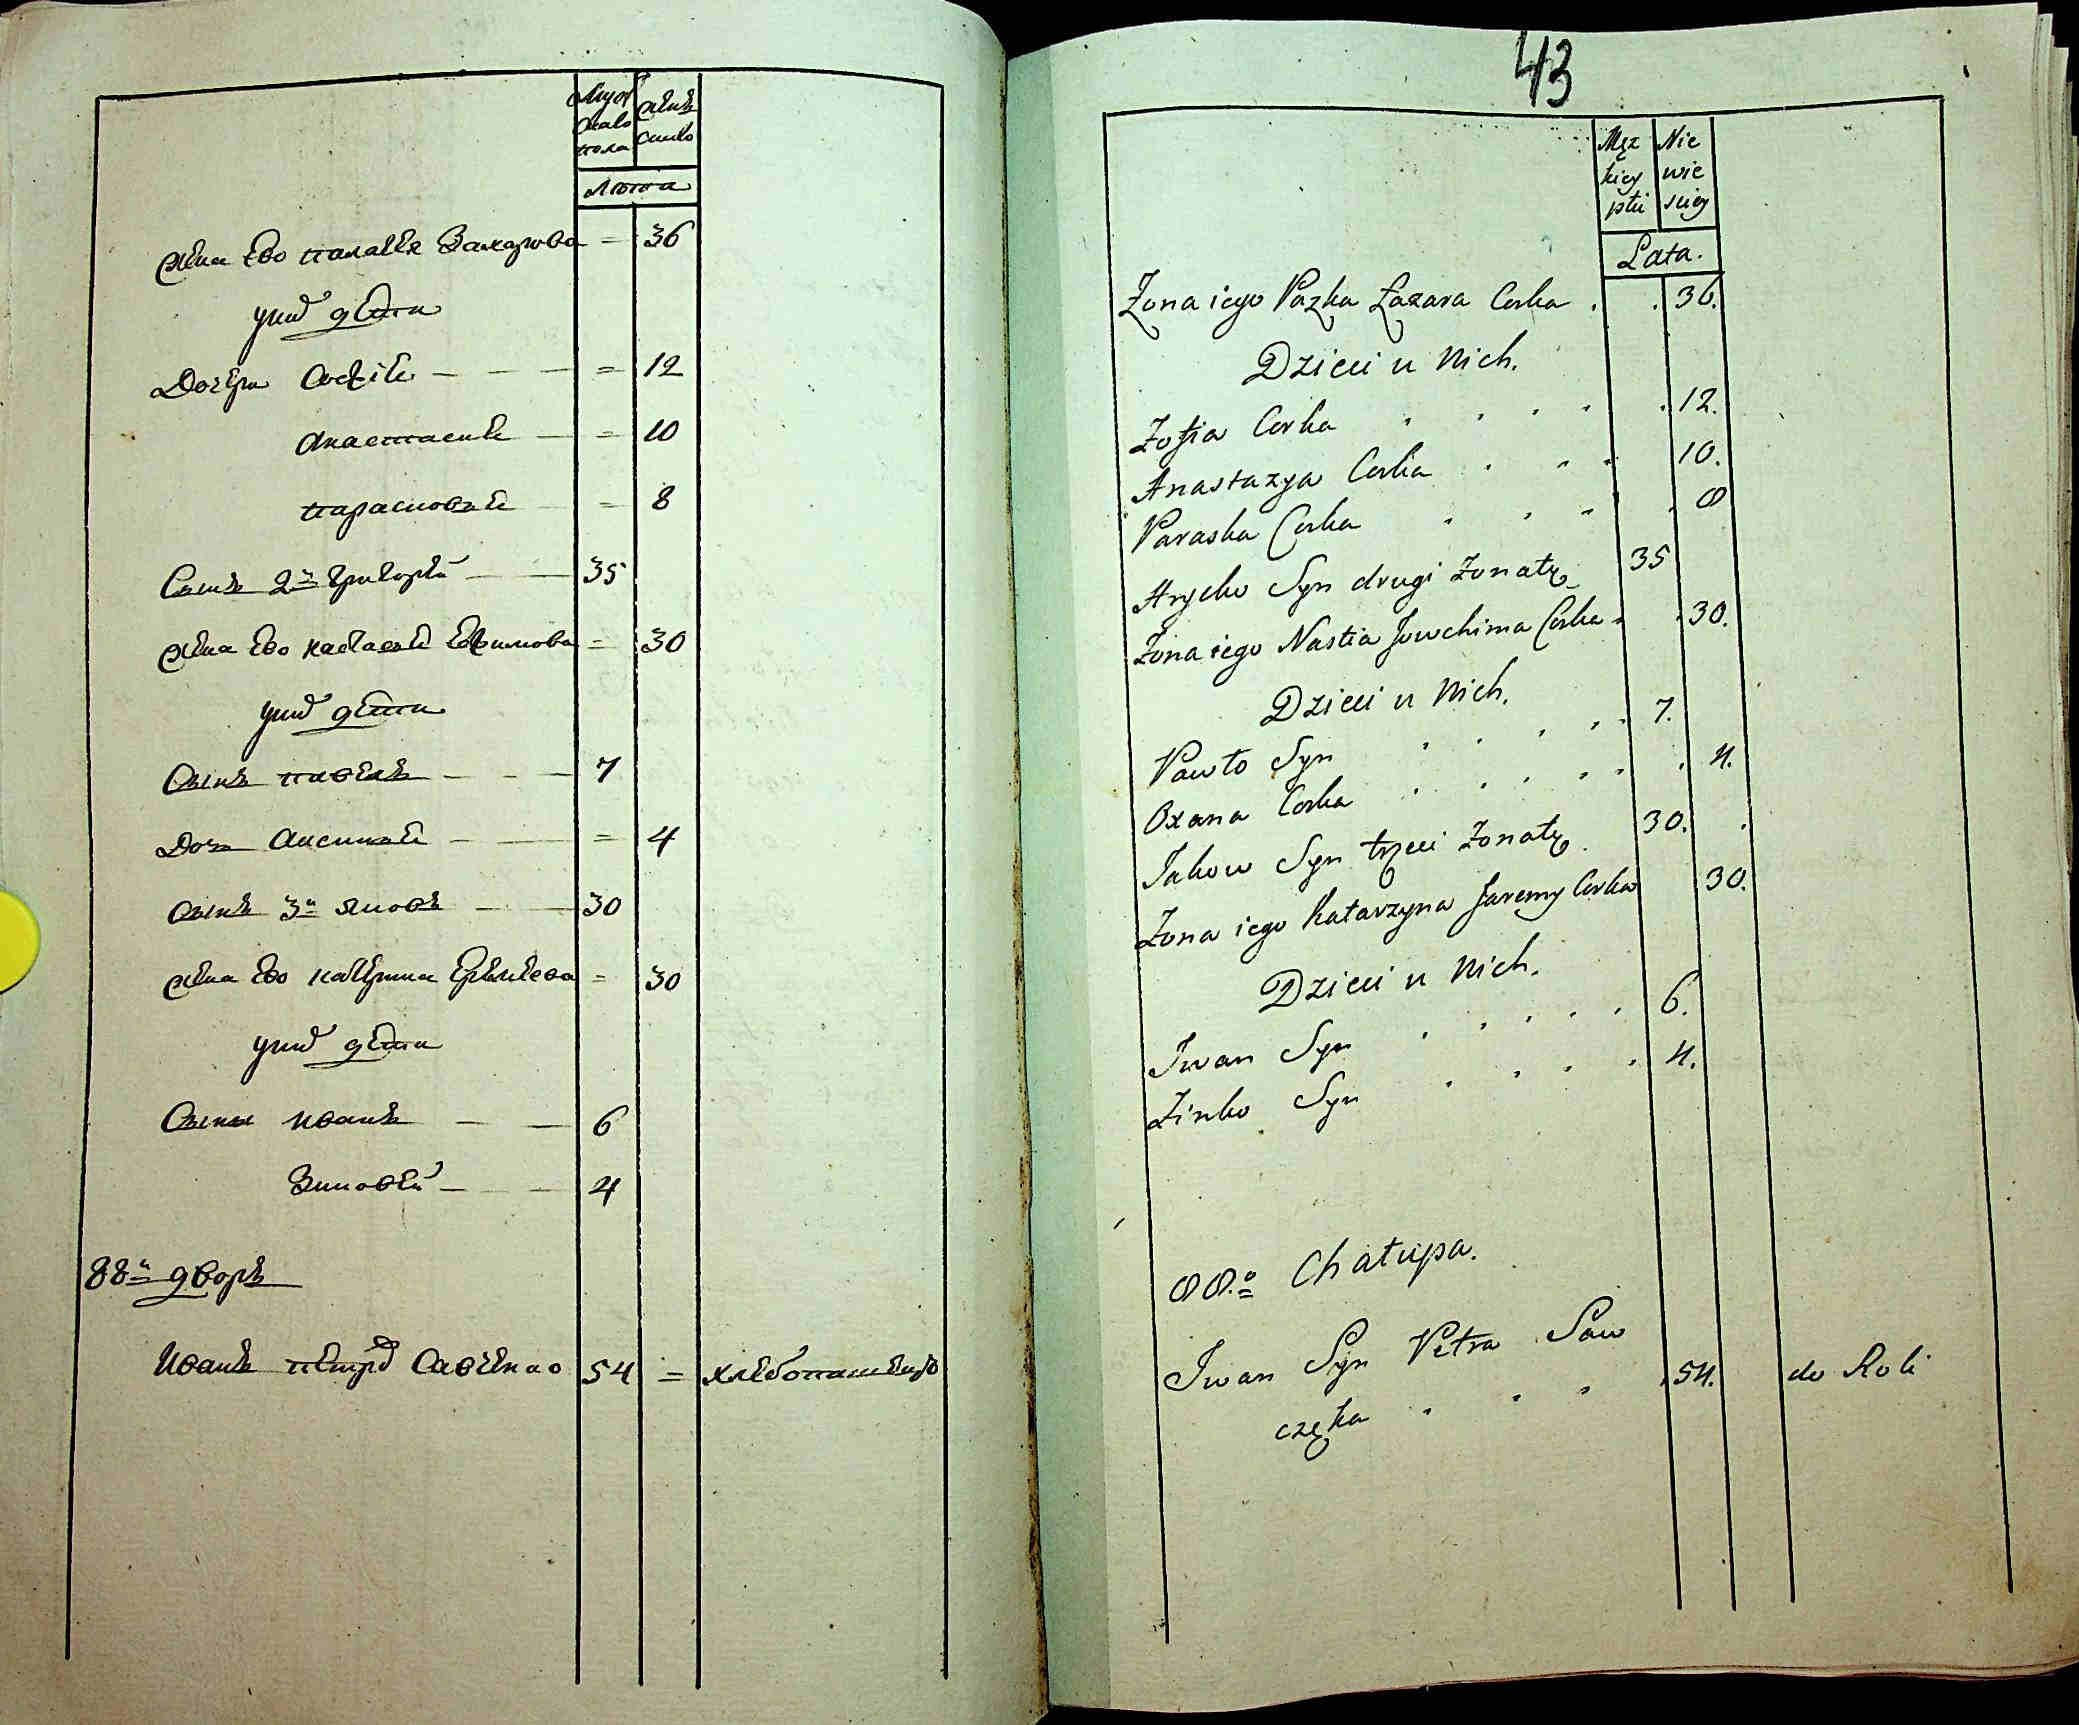 Мужска пола
женска
Лѣта
жена ево палажка Захарова = 36
у них дѣти
Дочери Софія = 12
Анастасия = 10
параско = 8
Сынъ 2й Григорей 35
жена ево настасья Ефимова = 30
у них дѣти
Сынъ павелъ 7
Дочь Аксинья = 4
Сынъ 3й яковъ 30
жена ево катерина = 30
у них дѣти
Сыны иванъ 6
Зиновей 4
88й дворъ
Иванъ петровъ Савченко 54 = хлебопашецъ
43
Męz
kiey
płci
Nie
wie
sciey
Lata.
Żona iego Pazka Łazara Corka . . 36.
Dzieci u Nich.
Zofia Corka . . . . . 12.
Anastazya Corka . . . 10.
Paraska Corka . . . . 8
Hryćko Syn drugi żonaty 35
Żona iego Nastia Jowchima Corka . . 30.
Dzieci u Nich.
Pawło Syn . . . . . 7.
Oxana Corka . . . . . . 4.
Jakow Syn trzeci żonaty. 30. .
Żona iego Katarzyna Jaremy Corka 30.
Dzieci u Nich.
Iwan Syn . . . . . 6.
Zinko Syn . . . . 4.
88.o Chałupa.
Iwan Syn Petra Saw
częka . . . . 54. do Roli